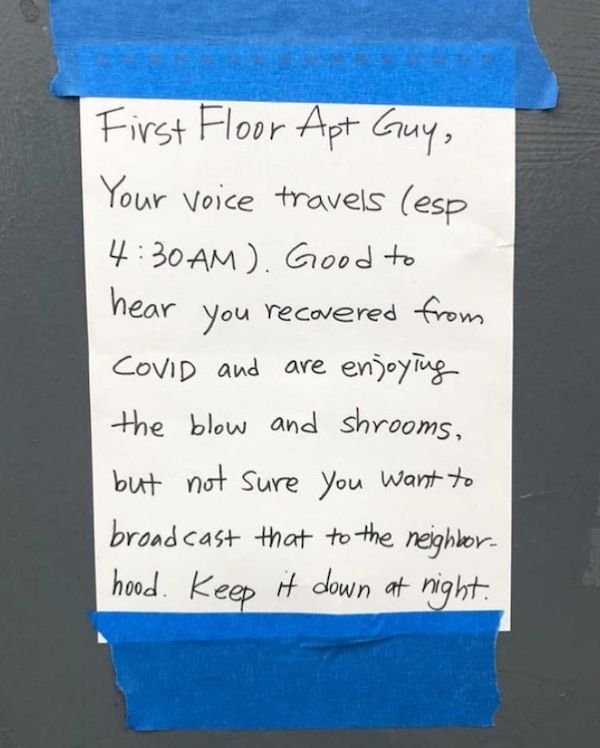 First Floor Apt Guy,
Your voice travels (esp
4:30AM). Good to
hear you recovered from
COVID and are enjoying
the blow and shrooms,
but not sure you want to
broadcast that to the neighbor-
hood. Keep it down at night.